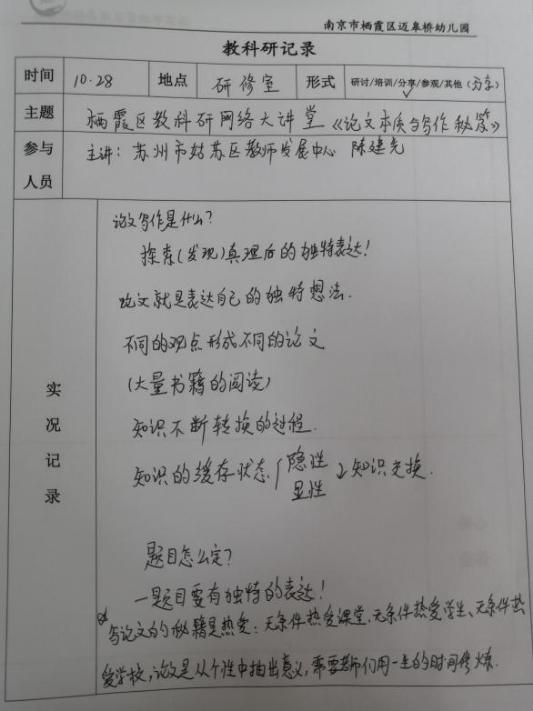 南京市栖霞区迈皋桥幼儿园
教科研记录
时间 10.28 地点 研修室 形式 研讨/培训/分享/参观/其他（ ）
主题 栖霞区教科研网络大讲堂《论文本质与写作秘笈》
参与人员 主讲：苏州市姑苏区教师发展中心 陈建先
实况记录
论文写作是什么？
探索（发现）真理后的独特表达！
论文就是表达自己的独特想法.
不同的观点形成不同的论文
（大量书籍的阅读）
知识不断转换的过程.
知识的缓存状态 隐性 显性 知识交换.
题目怎么定？
一题目要有独特的表达！
写论文的秘籍是热爱：无条件热爱课堂、无条件热爱学生、无条件热
爱学校，论文是从个性中抽出意义，需要教师们用一生的时间修炼.